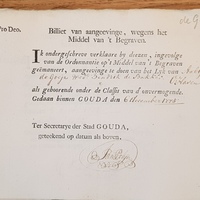 de G
Pro Deo.
Billiet van aangeevinge, wegens het
Middel van 't Begraven.
Ik ondergeschreve verklaare by deezen, ingevolge
van de Ordonnantie op 't Middel van 't Begraven
geëmaneert, aangeevinge te doen van het Lyk van
als gehoorende onder de Classis van d'onvermogende.
Gedaan binnen GOUDA, den 6
Ter Secretarye der Stad GOUDA,
geteekend op datum als boven.